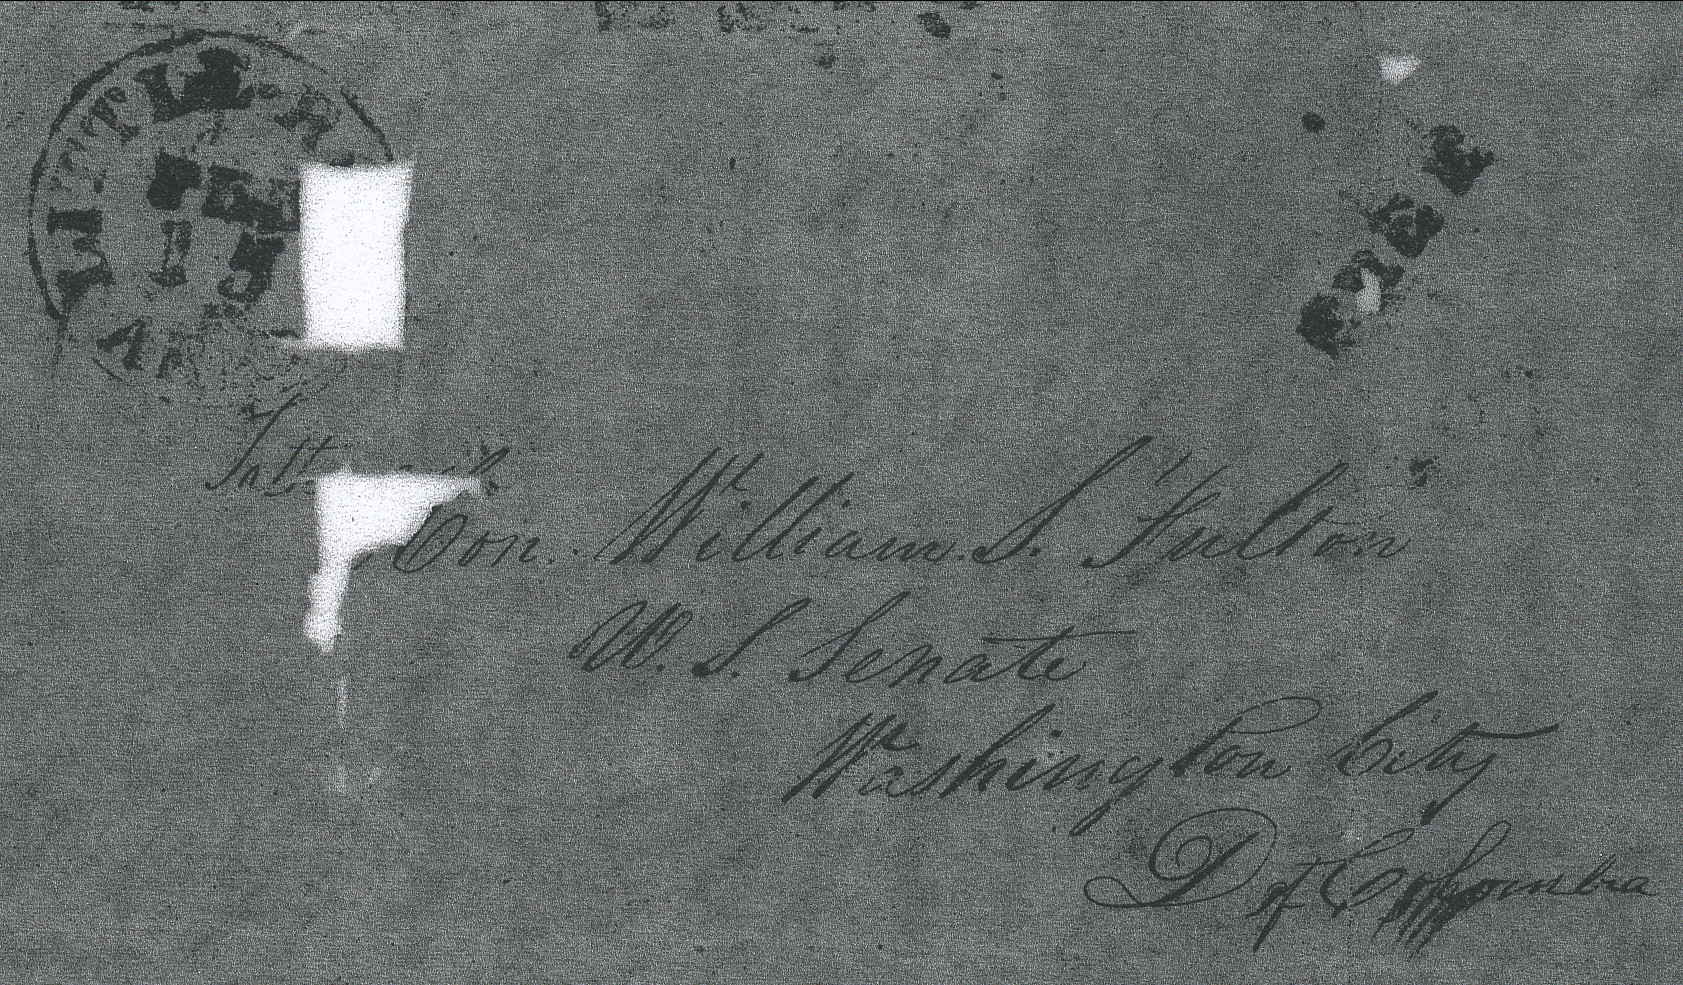 LITTLE R
FREE
Hon. William S. Fulton
U. S. Senate
Washington City
D of Columbia